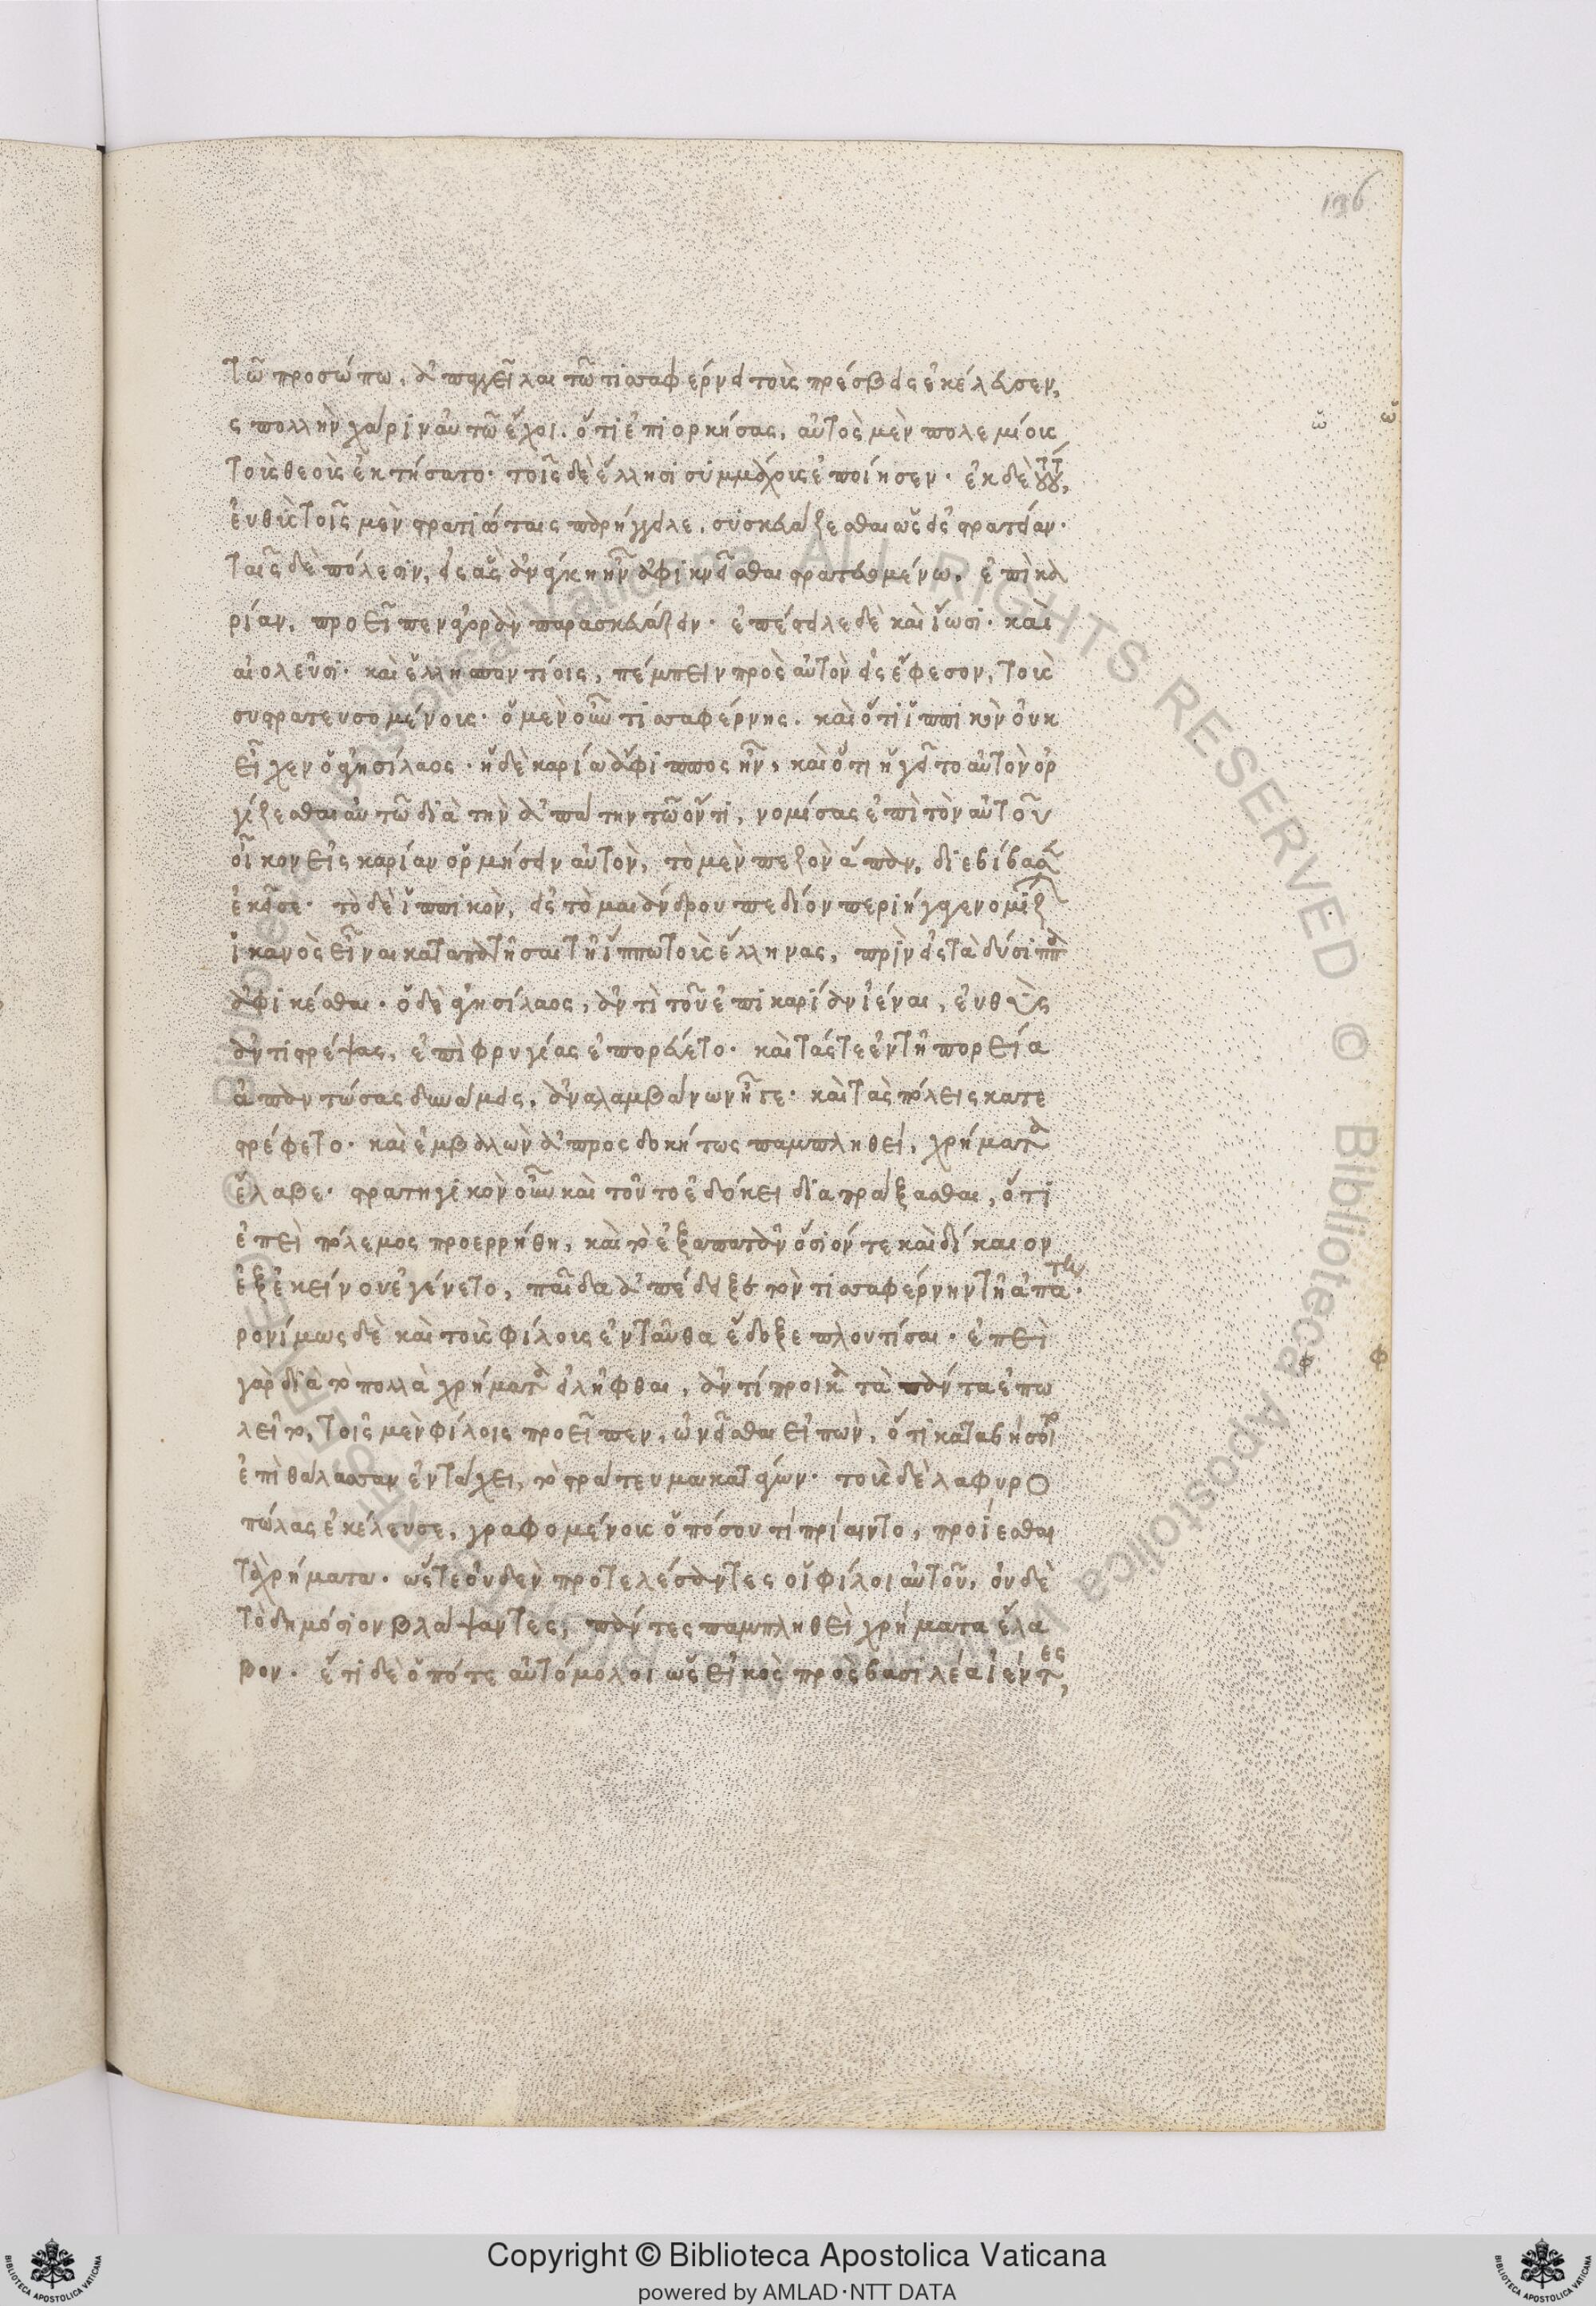 196
τῶ προσώπω, ἀπαγγεῖλαι τῶ τισσαφέρνει τοὺς πρέσβεις ἐκέλευσεν,
ς πολλὴν χάριν αὐτῶ ἔχοι. ὅτι ἐπιορκήσας, αὐτὸς μὲν πολεμίους
τοὺς θεοὺς ἐκτήσατο· τοῖς δὲ ἕλλησι συμμάχους ἐποίησεν· ἐκ δὲ
εὐθὺς τοῖς μὲν στρατιώταις παρήγγειλε, συσκευάζεσθαι ὡς εἰς στρατείαν·
ταῖς δὲ πόλεσιν, εἰς ἃς ἀνάγκη ἦν ἀφικνεῖσθαι στρατευομένω, ἐπὶ κα
ρίαν, προεῖπεν ἀγορὰν παρασκευάζειν· ἐπέστειλε δὲ καὶ ἴωσι· καὶ
αἰολεῦσι· καὶ ἑλλησποντίοις, πέμπειν πρὸς αὐτὸν εἰς ἔφεσον, τοὺς
συστρατευσομένους· ὁ μὲν οὖν τισσαφέρνης, καὶ ὅτι ἱππικὸν οὐκ
εἶχεν ὁ ἀγησίλαος· ἡ δὲ καρία ἄφιππος ἦν, καὶ ὅτι ἡγεῖτο αὐτὸν ὀρ
γίζεσθαι αὐτῶ διὰ τὴν ἀπάτην τῶ ὄντι, νομίσας ἐπὶ τὸν αὐτοῦ
οἶκον εἰς καρίαν ὁρμήσειν αὐτὸν, τὸ μὲν πεζὸν ἅπαν, διεβίβασεν
ἐκεῖσε· τὸ δὲ ἱππικὸν, εἰς τὸ μαιάνδρου πεδίον περιήγαγε νομίζων
ἱκανὸς εἶναι καταπατῆσαι τῆ ἵππω τοὺς ἕλληνας, πρὶν εἰς τὰ δύσιππα
ἀφικέσθαι· ὁ δὲ ἀγησίλαος, ἀντὶ τοῦ ἐπὶ καρίαν ἰέναι, εὐθὺς
ἀντιστρέψας, ἐπὶ φρυγίας ἐπορεύετο· καὶ τάς τε ἐν τῆ πορεία
ἀπαντώσας δυνάμεις, ἀναλαμβάνων ἦγε· καὶ τὰς πόλεις κατε
στρέφετο· καὶ ἐμβαλὼν ἀπροσδοκήτως παμπληθεῖ, χρήματα
ἔλαβε· στρατηγικὸν οὖν καὶ τοῦτο ἐδόκει διαπράξασθαι, ὅτι
ἐπεὶ πόλεμος προερρήθη, καὶ τὸ ἐξαπατᾶν ὅσιόν τε καὶ δίκαιον
ἐξ ἐκείνου ἐγένετο, παῖδα ἀπέδειξε τὸν τισσαφέρνην τῆ ἀπάτη·
φρονίμως δὲ καὶ τοὺς φίλους ἐνταῦθα ἔδοξε πλουτίσαι· ἐπεὶ
γὰρ διὰ τὸ πολλὰ χρήματα εἰλῆφθαι, ἀντίπροικα τὰ πάντα ἐπω
λεῖτο, τοῖς μὲν φίλοις προεῖπεν, ὠνεῖσθαι εἰπὼν, ὅτι καταβήσοιτο
ἐπὶ θάλασσαν ἐν τάχει, τὸ στράτευμα κατάγων· τοὺς δὲ λαφυρο
πώλας ἐκέλευσε, γραφομένους ὁπόσου τὶ πρίαιντο, προΐεσθαι
τὰ χρήματα. ὥστε οὐδὲν προτελέσαντες οἱ φίλοι αὐτοῦ, οὐδὲ
τὸ δημόσιον βλάψαντες, πάντες παμπληθεῖ χρήματα ἔλα
βον. ἔτι δὲ ὁπότε αὐτόμολοι ὡς εἰκὸς πρὸς βασιλέα ἰέντες,
Copyright © Biblioteca Apostolica Vaticana
powered by AMLAD·NTT DATA